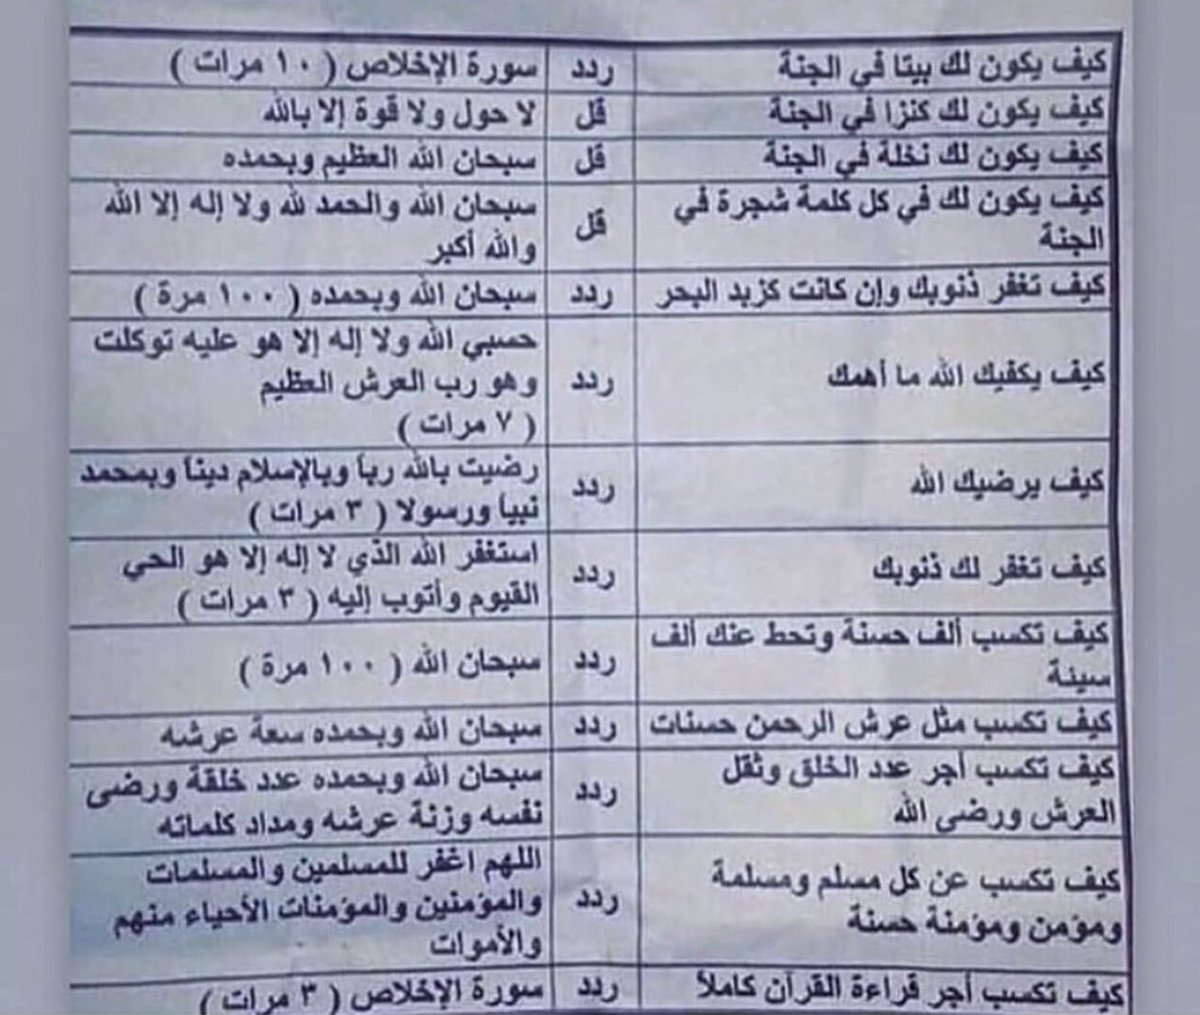 كيف يكون لك بيتا في الجنة ردد سورة الإخلاص ( ١٠ مرات )
كيف يكون لك كنزا في الجنة قل لا حول ولا قوة إلا بالله
كيف يكون لك نخلة في الجنة قل سبحان الله العظيم وبحمده
كيف يكون لك في كل كلمة شجرة في
الجنة
قل
سبحان الله والحمد لله ولا إله إلا الله
والله أكبر
كيف تغفر ذنوبك وإن كانت كزبد البحر ردد سبحان الله وبحمده ( ١٠٠ مرة )
كيف يكفيك الله ما أهمك
ردد
حسبي الله ولا إله إلا هو عليه توكلت
وهو رب العرش العظيم
( ٧ مرات )
كيف يرضيك الله
ردد
رضيت بالله رباً وبالإسلام ديناً وبمحمد
نبياً ورسولا ( ٣ مرات )
كيف تغفر لك ذنوبك
ردد
استغفر الله الذي لا إله إلا هو الحي
القيوم وأتوب إليه ( ٣ مرات )
كيف تكسب ألف حسنة وتحط عنك ألف
سيئة
ردد
سبحان الله ( ١٠٠ مرة )
كيف تكسب مثل عرش الرحمن حسنات ردد سبحان الله وبحمده سعة عرشه
كيف تكسب أجر عدد الخلق وثقل
العرش ورضى الله
ردد
سبحان الله وبحمده عدد خلقة ورضى
نفسه وزنة عرشه ومداد كلماته
كيف تكسب عن كل مسلم ومسلمة
ومؤمن ومؤمنة حسنة
ردد
اللهم اغفر للمسلمين والمسلمات
والمؤمنين والمؤمنات الأحياء منهم
والأموات
كيف تكسب أجر قراءة القرآن كاملاً ردد سورة الإخلاص ( ٣ مرات )